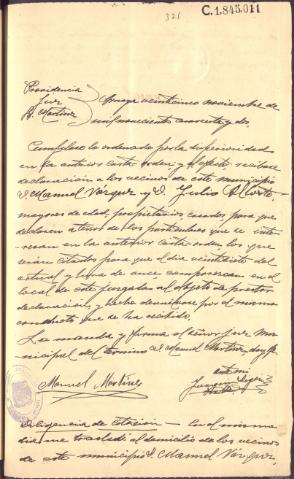 321
C.1.845.011
Providencia
Juez
Sr. Martínez
veinticinco noviembre de
mil novecientos cuarenta y dos.
Cumplase lo ordenado por la superioridad
en la anterior carta orden, y al efecto recibase
declaración a los vecinos de este municipio
D. Manuel Vázquez y D. Julio
mayores de edad, propietarios casados para que
declaren a tenor de los particulares que se
en la anterior carta orden, los que
serán citados para que el día veintisiete del
actual y hora de once comparezcan en el
local de este juzgado al objeto de prestar
declaración, y hecho devuelvase por el mismo
conducto que se ha recibido.
Lo manda y firma el señor Juez Mu-
nicipal del término D. Manuel Martínez, doy fe.
Manuel Martínez
ante mi
Diligencia de citación — En el mismo
día me trasladé al domicilio de los vecinos
de este municipio D. Manuel Vázquez,